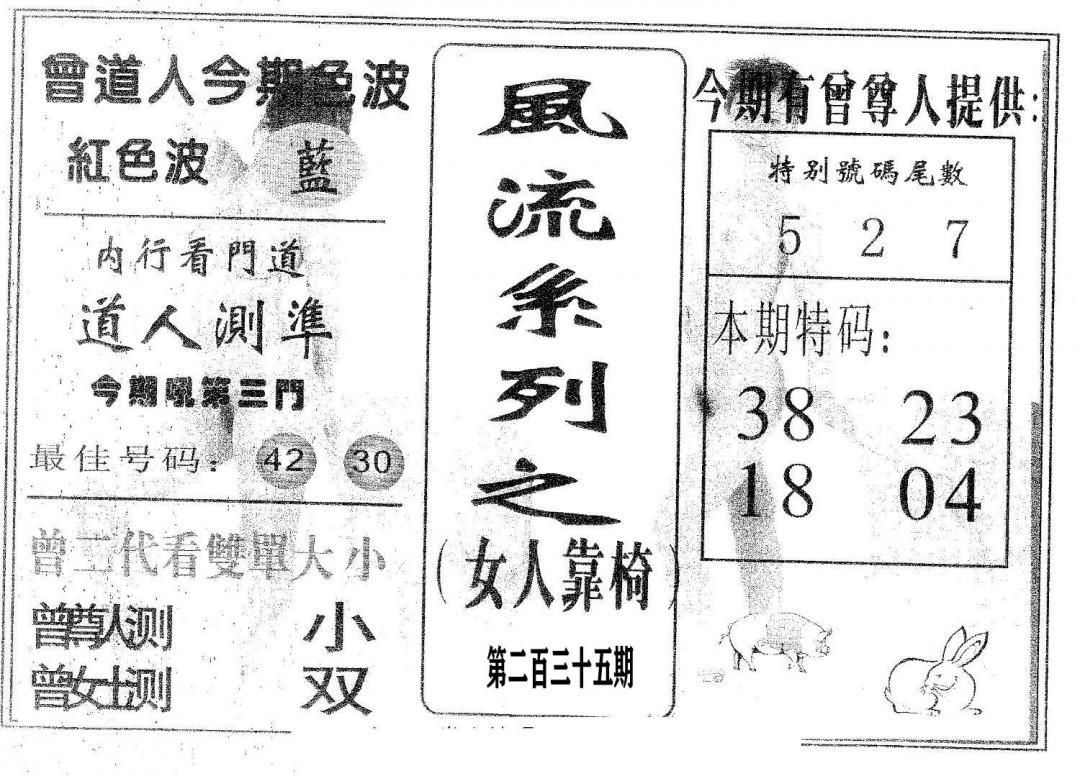 曾道人今期色波
紅色波 藍
内行看門道
道人測準
今期吼第三門
最佳号码: 42 30
曾二代看雙單大小
曾尊人测 小
曾女士测 双
風流系列之
(女人靠椅)
第二百三十五期
今期有曾尊人提供:
特别號碼尾數
5 2 7
本期特码:
38 23
18 04